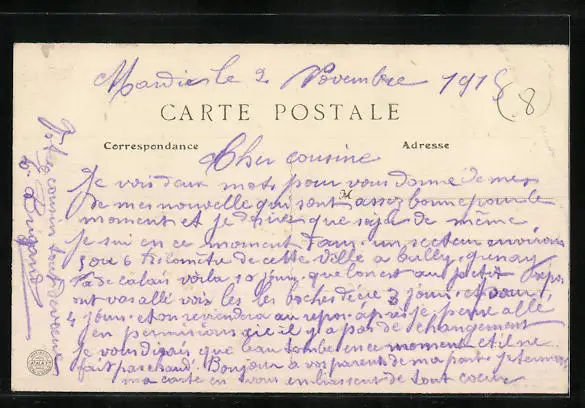 Mardie le 2 Novembre 1915
(8)
CARTE POSTALE
Correspondance
Adresse
Cher cousine
Je vois deux mots pour vous donné de mes
de mes nouvelle qui sont assez bonne pour le
moment et je désire que de même
Je sui en ce moment dans un secteur environ
5 ou 6 kilomètre de cette ville a bully grenay
pa de calais voila 10 jour que lon est au petit repos
ont vas allé voir les les boches dière 3 jour et pour
4 jour et on reviendera au repos après je pense allé
en permission si il y a pas de changement
Je vous dirais que l'eau tombe en ce moment et il ne
fait pas chaud Bonjour a vos parents de ma part je termine
ma carte en vous embrassent de tout coeur
Votre cousin tout dévoué